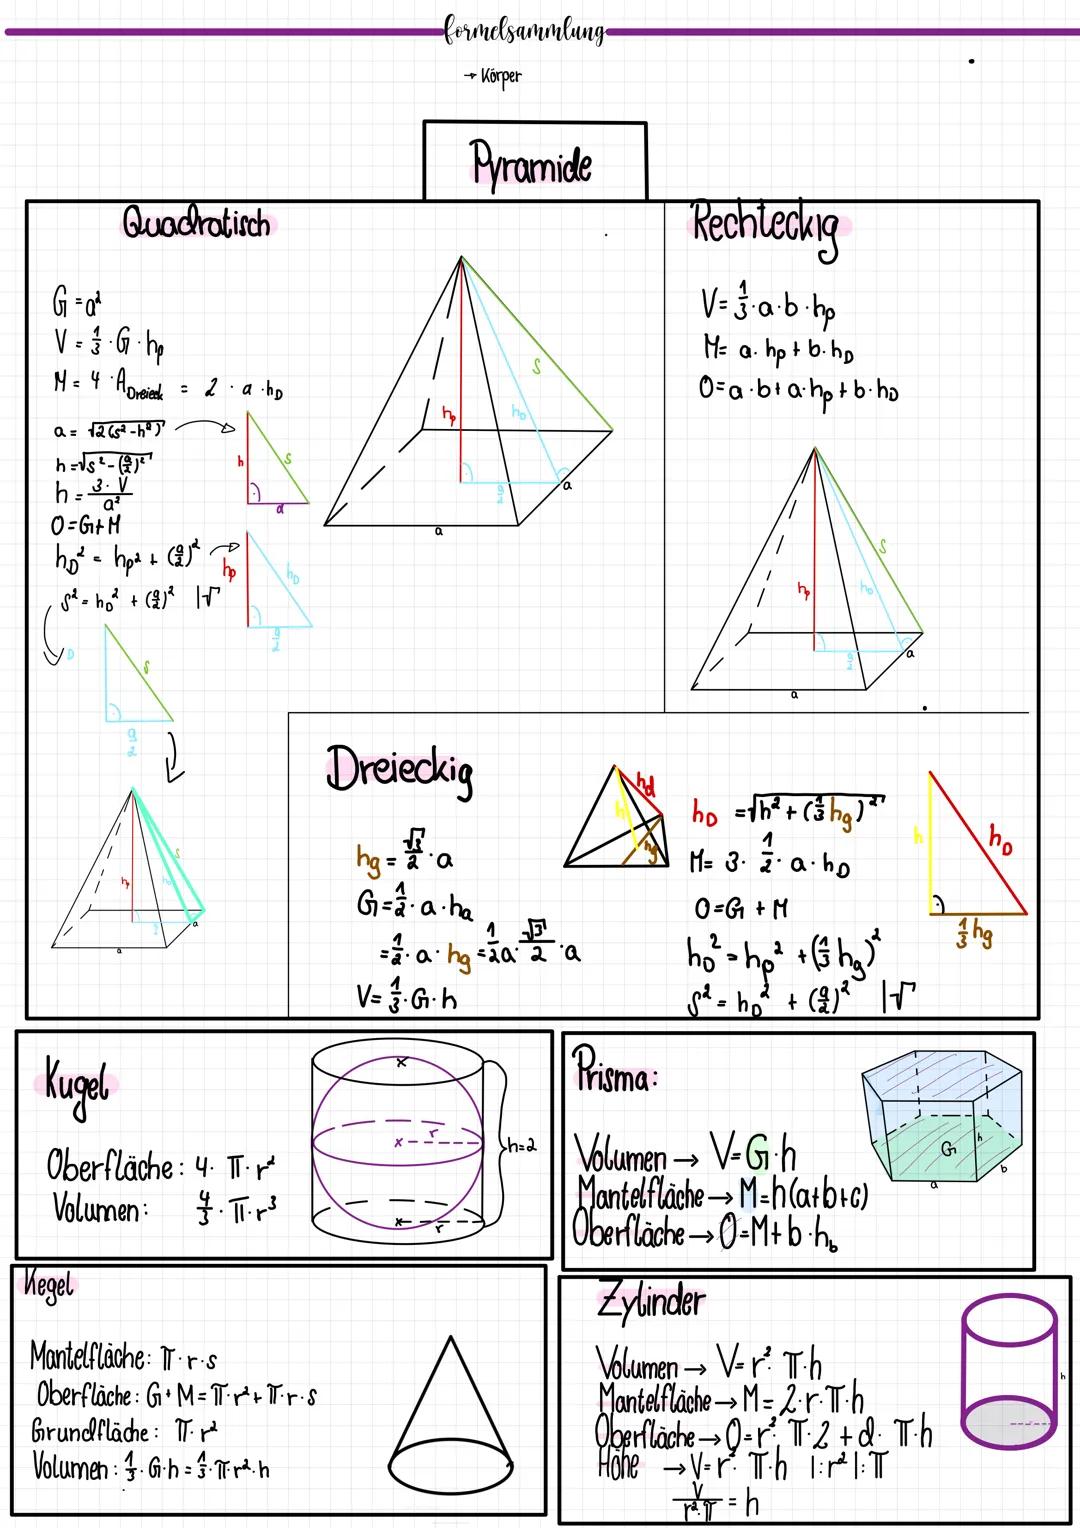 formelsammlung
→ Körper
Pyramide
Quadratisch
G = a²
V = 1/3 · G · hp
M = 4 · A Dreieck = 2 · a · hD
a = √2(s²-h²)
h = √s² - (a/2)²
h = 3 · V / a²
O = G + M
hD² = hp² + (a/2)²
s² = hD² + (a/2)² |√
h
s
a
hp
hD
a/2
D
s
a/2
hp
hD
s
a/2
a
a
hp
hD
s
a/2
a
a
Rechteckig
V = 1/3 · a · b · hp
M = a · hp + b · hD
O = a · b + a · hp + b · hD
hp
hD
s
a/2
a
a
Dreieckig
hg = √3/2 · a
G = 1/2 · a · ha
= 1/2 · a · hg = 1/2 a · √3/2 · a
V = 1/3 · G · h
hd
h
hg
hD = √h² + (1/3 hg)²
M = 3 · 1/2 · a · hD
O = G + M
hD² = hp² + (1/3 hg)²
s² = hD² + (a/2)² |√
h
hD
1/3 hg
Kugel
Oberfläche: 4 · π · r²
Volumen: 4/3 · π · r³
r
h=2
r
Prisma:
Volumen → V = G · h
Mantelfläche → M = h(a+b+c)
Oberfläche → O = M + b · hb
G
h
a
b
Kegel
Mantelfläche: π · r · s
Oberfläche: G + M = π · r² + π · r · s
Grundfläche: π · r²
Volumen: 1/3 · G · h = 1/3 · π · r² · h
Zylinder
Volumen → V = r² · π · h
Mantelfläche → M = 2 · r · π · h
Oberfläche → O = r² · π · 2 + d · π · h
Höhe → V = r² · π · h |: r² |: π
V / r² · π = h
h